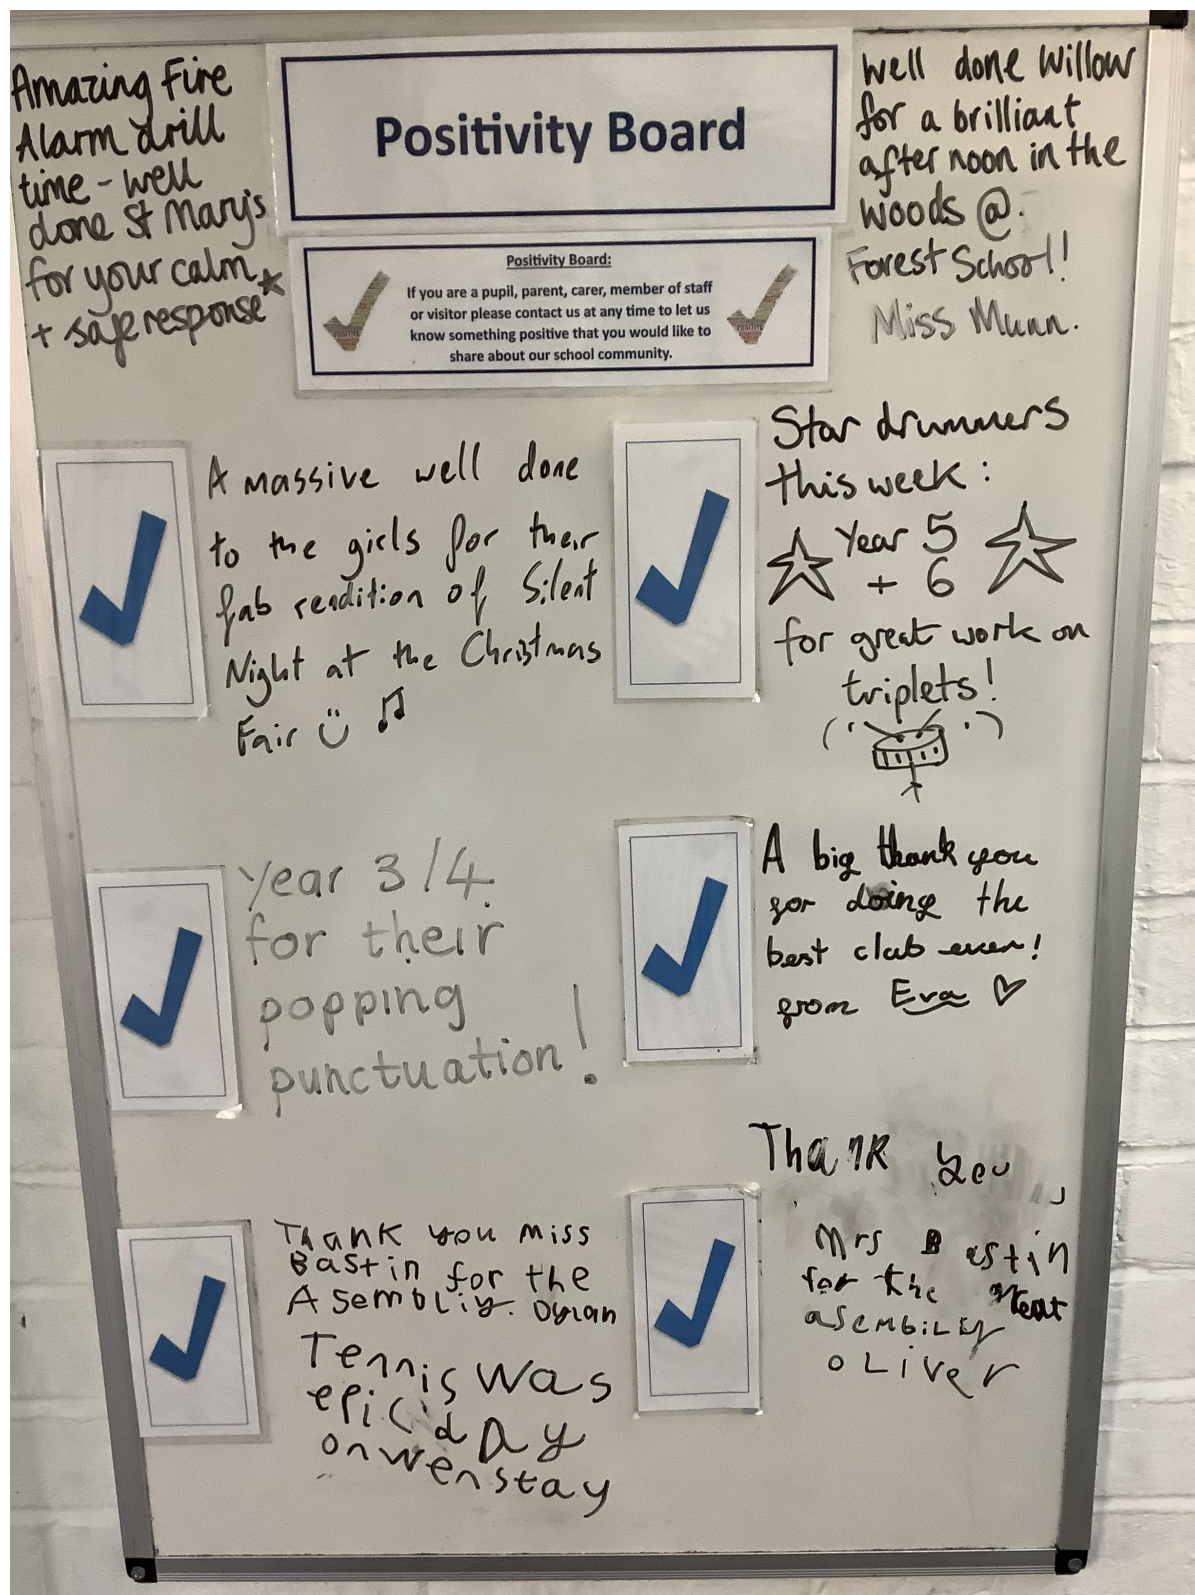 Amazing Fire
Alarm drill
time - well
done St Mary's
for your calm
+ safe response
Positivity Board
Positivity Board:
If you are a pupil, parent, carer, member of staff
or visitor please contact us at any time to let us
know something positive that you would like to
share about our school community.
Well done Willow
for a brilliant
after noon in the
woods @.
Forest School!
Miss Munn.
A massive well done
to the girls for their
fab rendition of Silent
Night at the Christmas
Fair
Star drummers
this week:
Year 5
+ 6
for great work on
triplets!
Year 3/4
for their
popping
punctuation!
A big thank you
for doing the
best club ever!
from Eva
Thank you miss
Bastin for the
Asembliy. Dylan
Tennis was
epic
DAy
on wenstay
Thank you
Mrs Bastin
for the
asembiliy
oLiver